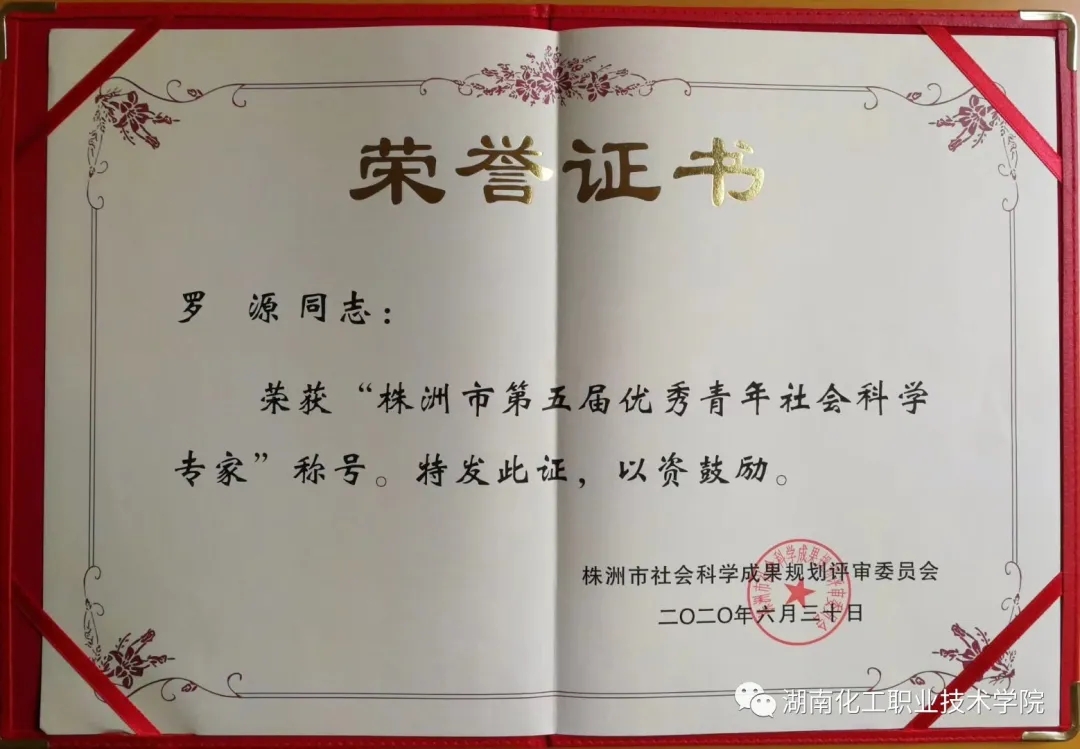 荣誉证书
罗 源 同志：
荣获“株洲市第五届优秀青年社会科学
专家”称号。特发此证，以资鼓励。
株洲市社会科学成果规划评审委员会
二〇二〇年六月三十日
湖南化工职业技术学院